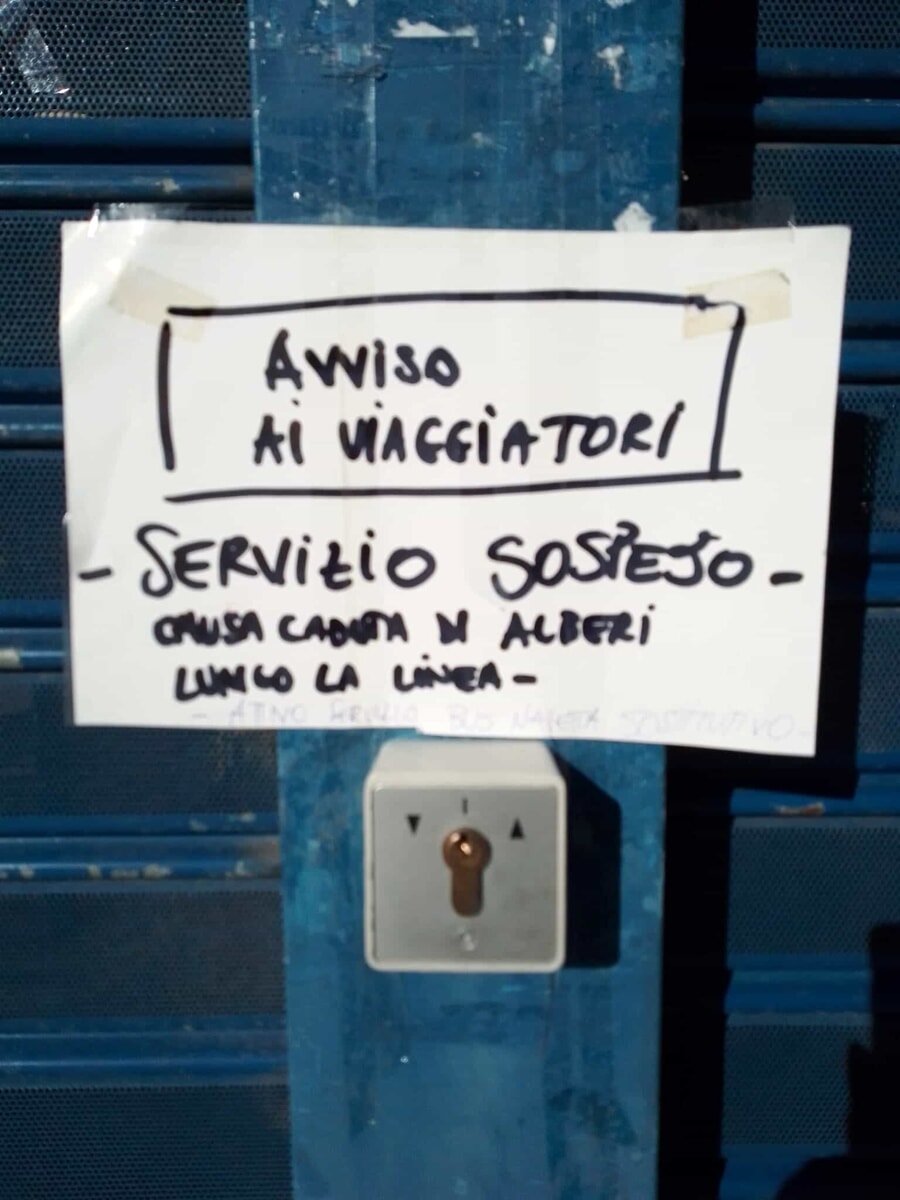 AVVISO
AI VIAGGIATORI
- SERVIZIO SOSPESO -
CAUSA CADUTA DI ALBERI
LUNGO LA LINEA -
BUS NAVETTA SOSTITUTIVO -